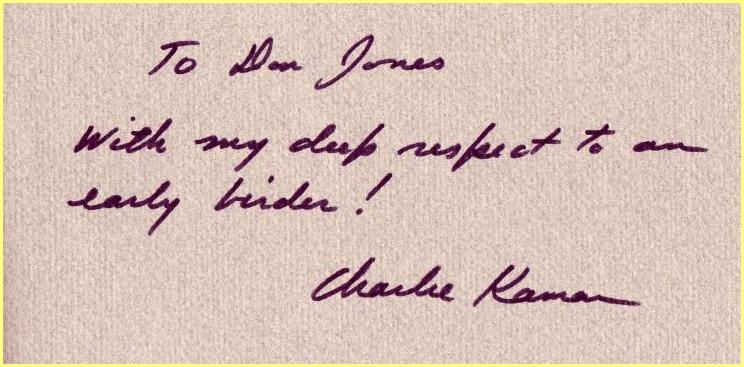 To Don Jones
With my deep respect to an
early birder!
Charlie Kaman